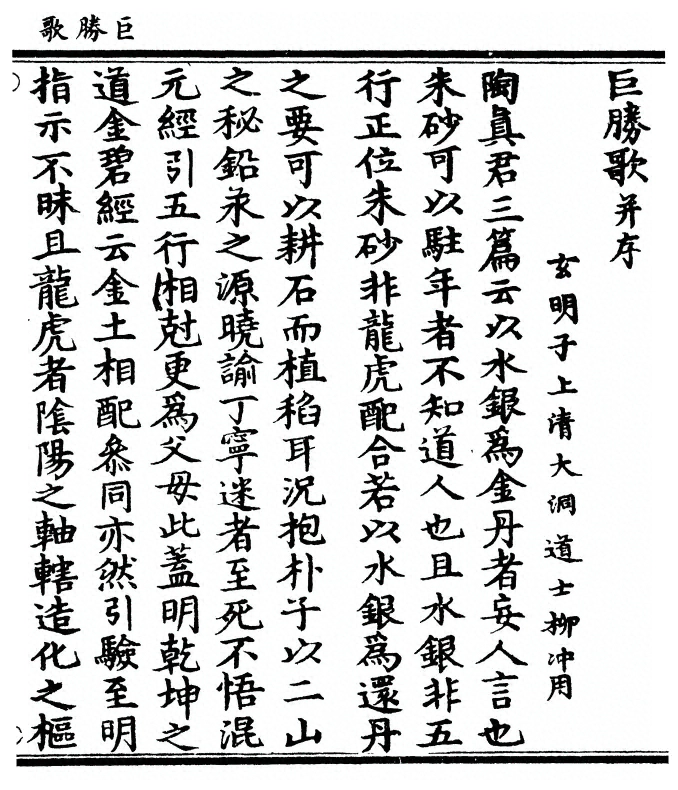 巨勝歌
巨勝歌并序
玄明子上清大洞道士柳冲用
陶眞君三篇云以水銀爲金丹者妄人言也
朱砂可以駐年者不知道人也且水銀非五
行正位朱砂非龍虎配合若以水銀爲還丹
之要可以耕石而植稻耳況抱朴子以二山
之秘鉛汞之源曉諭丁寧迷者至死不悟混
元經引五行相尅更爲父母此蓋明乾坤之
道金碧經云金土相配叅同亦然引驗至明
指示不昧且龍虎者陰陽之軸轄造化之樞